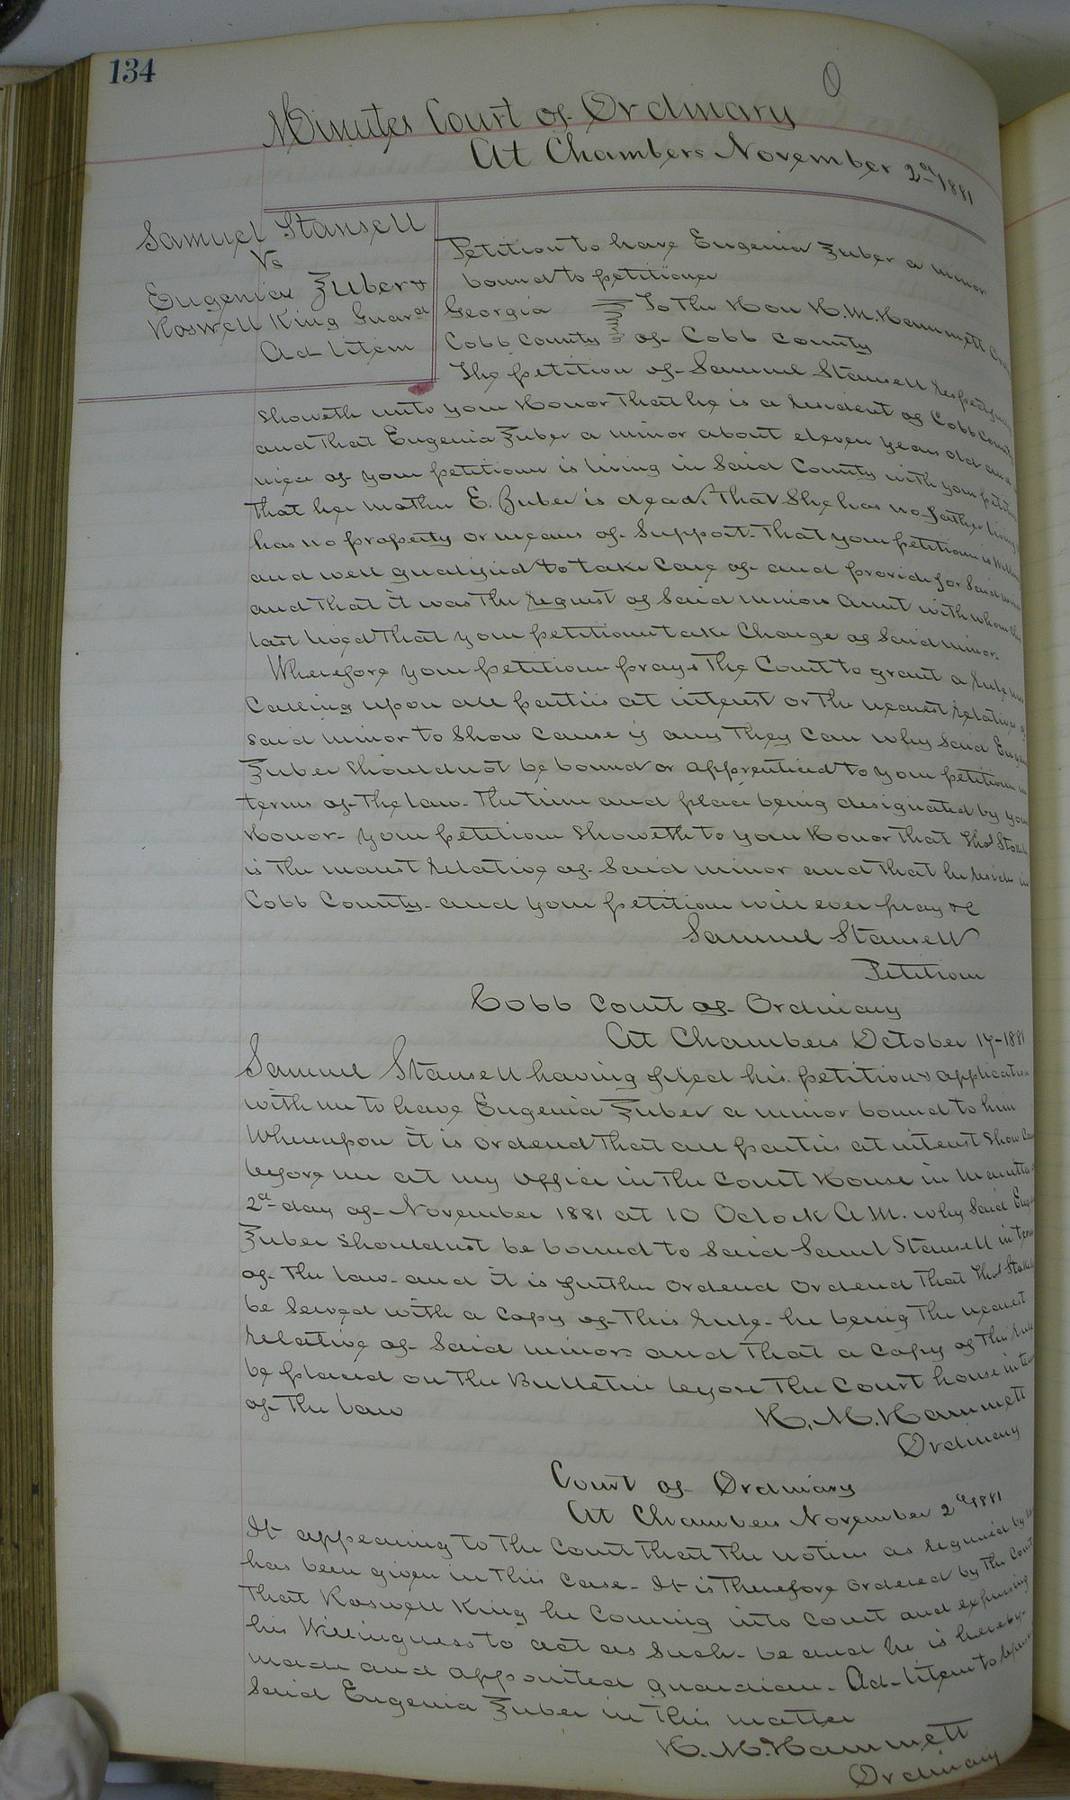 134
Minutes Court of Ordinary
At Chambers November 2d 1881
Samuel Stansell
Vs
Eugenia Zuber &
Roswell King Guard
Ad-litem
Petition to have Eugenia Zuber a minor
bound to petitioner
Georgia To The Hon H.M. Hammett
Cobb County of Cobb County
The petition of Samuel Stansell Respectfully
Showeth unto your Honor That he is a resident of Cobb County
and That Eugenia Zuber a minor about eleven years old and
niece of your petitioner is living in Said County with your
That her mother E. Zuber is dead. That She has no father living
has no property or means of Support. That your petitioner is
and well qualified to take Care of and provide for Said
and That it was The request of Said minors Aunt with whom she
last lived That your petitioner take Charge of Said minor.
Wherefore your petitioner prays The Court to grant a Rule
Calling upon all parties at interest or The nearest Relatives of
Said minor to Show Cause if any They Can why Said
Zuber Should not be bound or apprenticed to your petitioner in
terms of The law. The time and place being designated by your
Honor- your petitioner Showeth to your Honor That Thos
is The nearest Relative of Said minor and That he resides in
Cobb County- and your petitioner will ever pray &c
Samuel Stansell
Petitioner
Cobb Court of Ordinary
At Chambers October 17-1881
Samuel Stansell having filed his petition & application
with me to have Eugenia Zuber a minor bound to him
Whereupon it is ordered That all parties at interest Show
before me at my office in The Court House in Marietta
2d day of November 1881 at 10 Oclock A.M. why Said
Zuber Should not be bound to Said Saml Stansell in terms
of The law- and it is further ordered ordered That Thos
be Served with a Copy of This Rule- he being The nearest
Relative of Said minor and That a Copy of This Rule
be placed on The Bulletin before The Court house in
of The law
H. M. Hammett
Ordinary
Court of Ordinary
At Chambers November 2d 1881
It appearing to The Court That The notice as required by
has been given in This Case- It is Therefore ordered by The Court
That Roswell King he Coming into Court and expressing
his Willingness to act as Such- be and he is hereby-
made and appointed guardian- Ad-litem to
Said Eugenia Zuber in This matter
H. M. Hammett
Ordinary